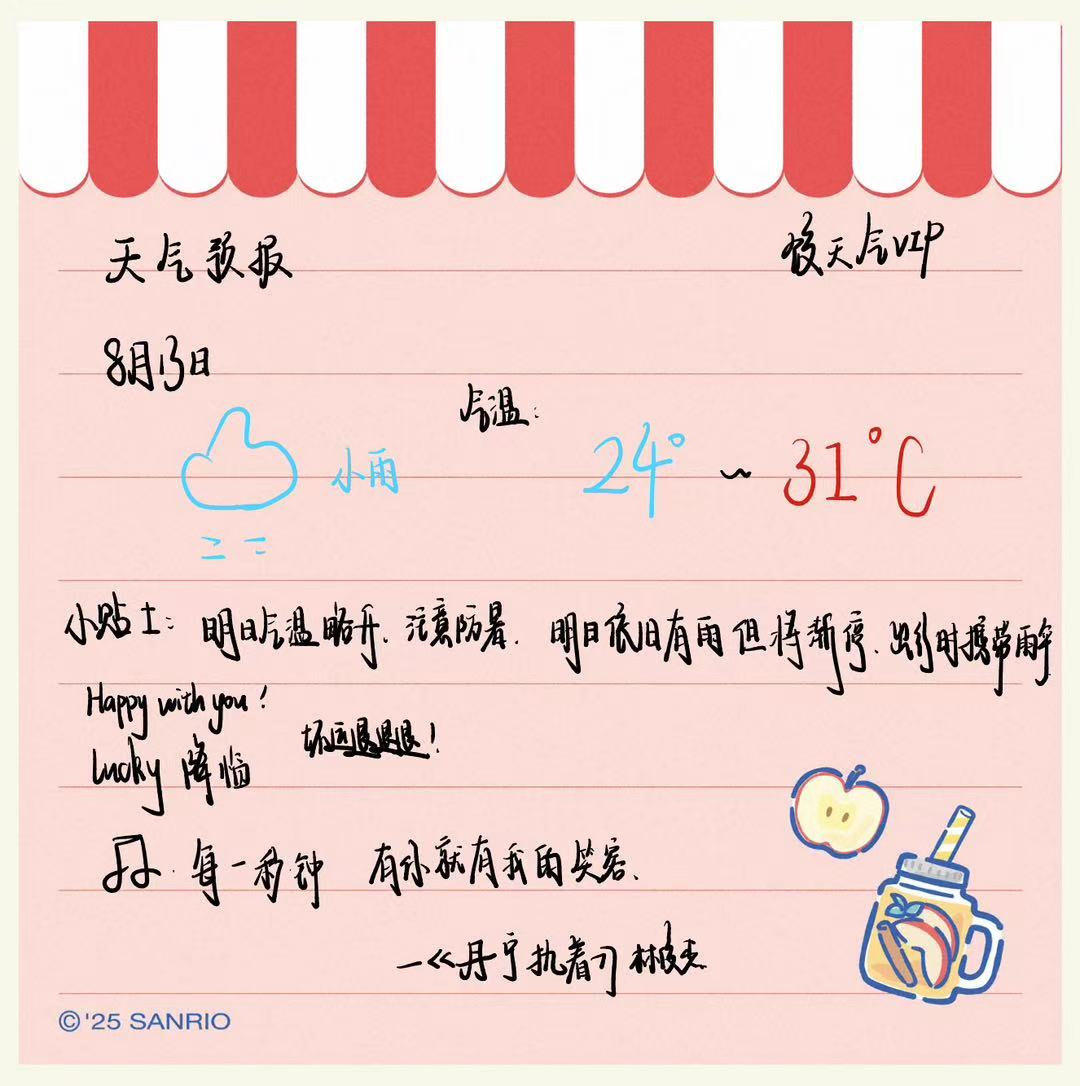 天气预报
天气VIP
8月13日
气温:
小雨
24° ~ 31°C
小贴士: 明日气温略升,注意防暑. 明日依旧有雨但将渐停,出行时携带雨伞
Happy with you!
Lucky 降临
坏运退退退!
每一秒钟 有你就有我的笑容.
—《丹宁执着》林俊杰
©'25 SANRIO